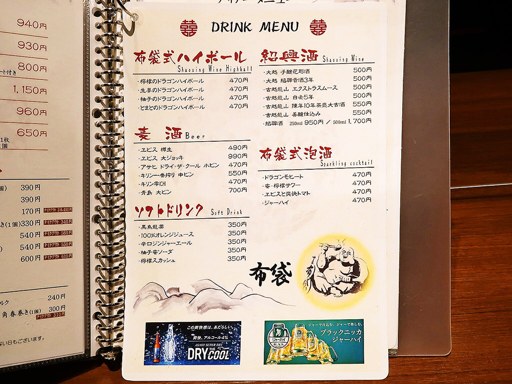 940円
930円
800円
1,150円
960円
650円
390円
390円
170円
330円
540円
240円
300円
DRINK MENU
布袋式ハイボール
Shaoxing Wine Highball
・檸檬のドラゴンハイボール 470円
・生姜のドラゴンハイボール 470円
・柚子のドラゴンハイボール 470円
・とまとのドラゴンハイボール 470円
麦酒 Beer
・ヱビス 樽生 490円
・ヱビス 大ジョッキ 990円
・アサヒ ドライ・ザ・クール 小ビン 470円
・キリン一番搾り 中ビン 550円
・キリン零ICHI 470円
・青島 大ビン 700円
ソフトドリンク Soft Drink
・黒烏龍茶 350円
・100%オレンジジュース 350円
・辛口ジンジャーエール 350円
・柚子蜜ソーダ 350円
・檸檬スカッシュ 350円
紹興酒 Shaoxing Wine
500円
500円
・古越龍山 エクストラスムース 500円
・古越龍山 白磁5年 500円
・古越龍山 陳年10年茶壺大古酒 550円
・古越龍山 甕熟仕込み 550円
950円 / 500ml 1,700円
布袋式泡酒
Sparkling cocktail
・ドラゴンモヒート 470円
・杏・檸檬サワー 470円
・ヱビスと完熟トマト 470円
・ジャーハイ 470円
布袋
DRY COOL
ブラックニッカ
ジャーハイ